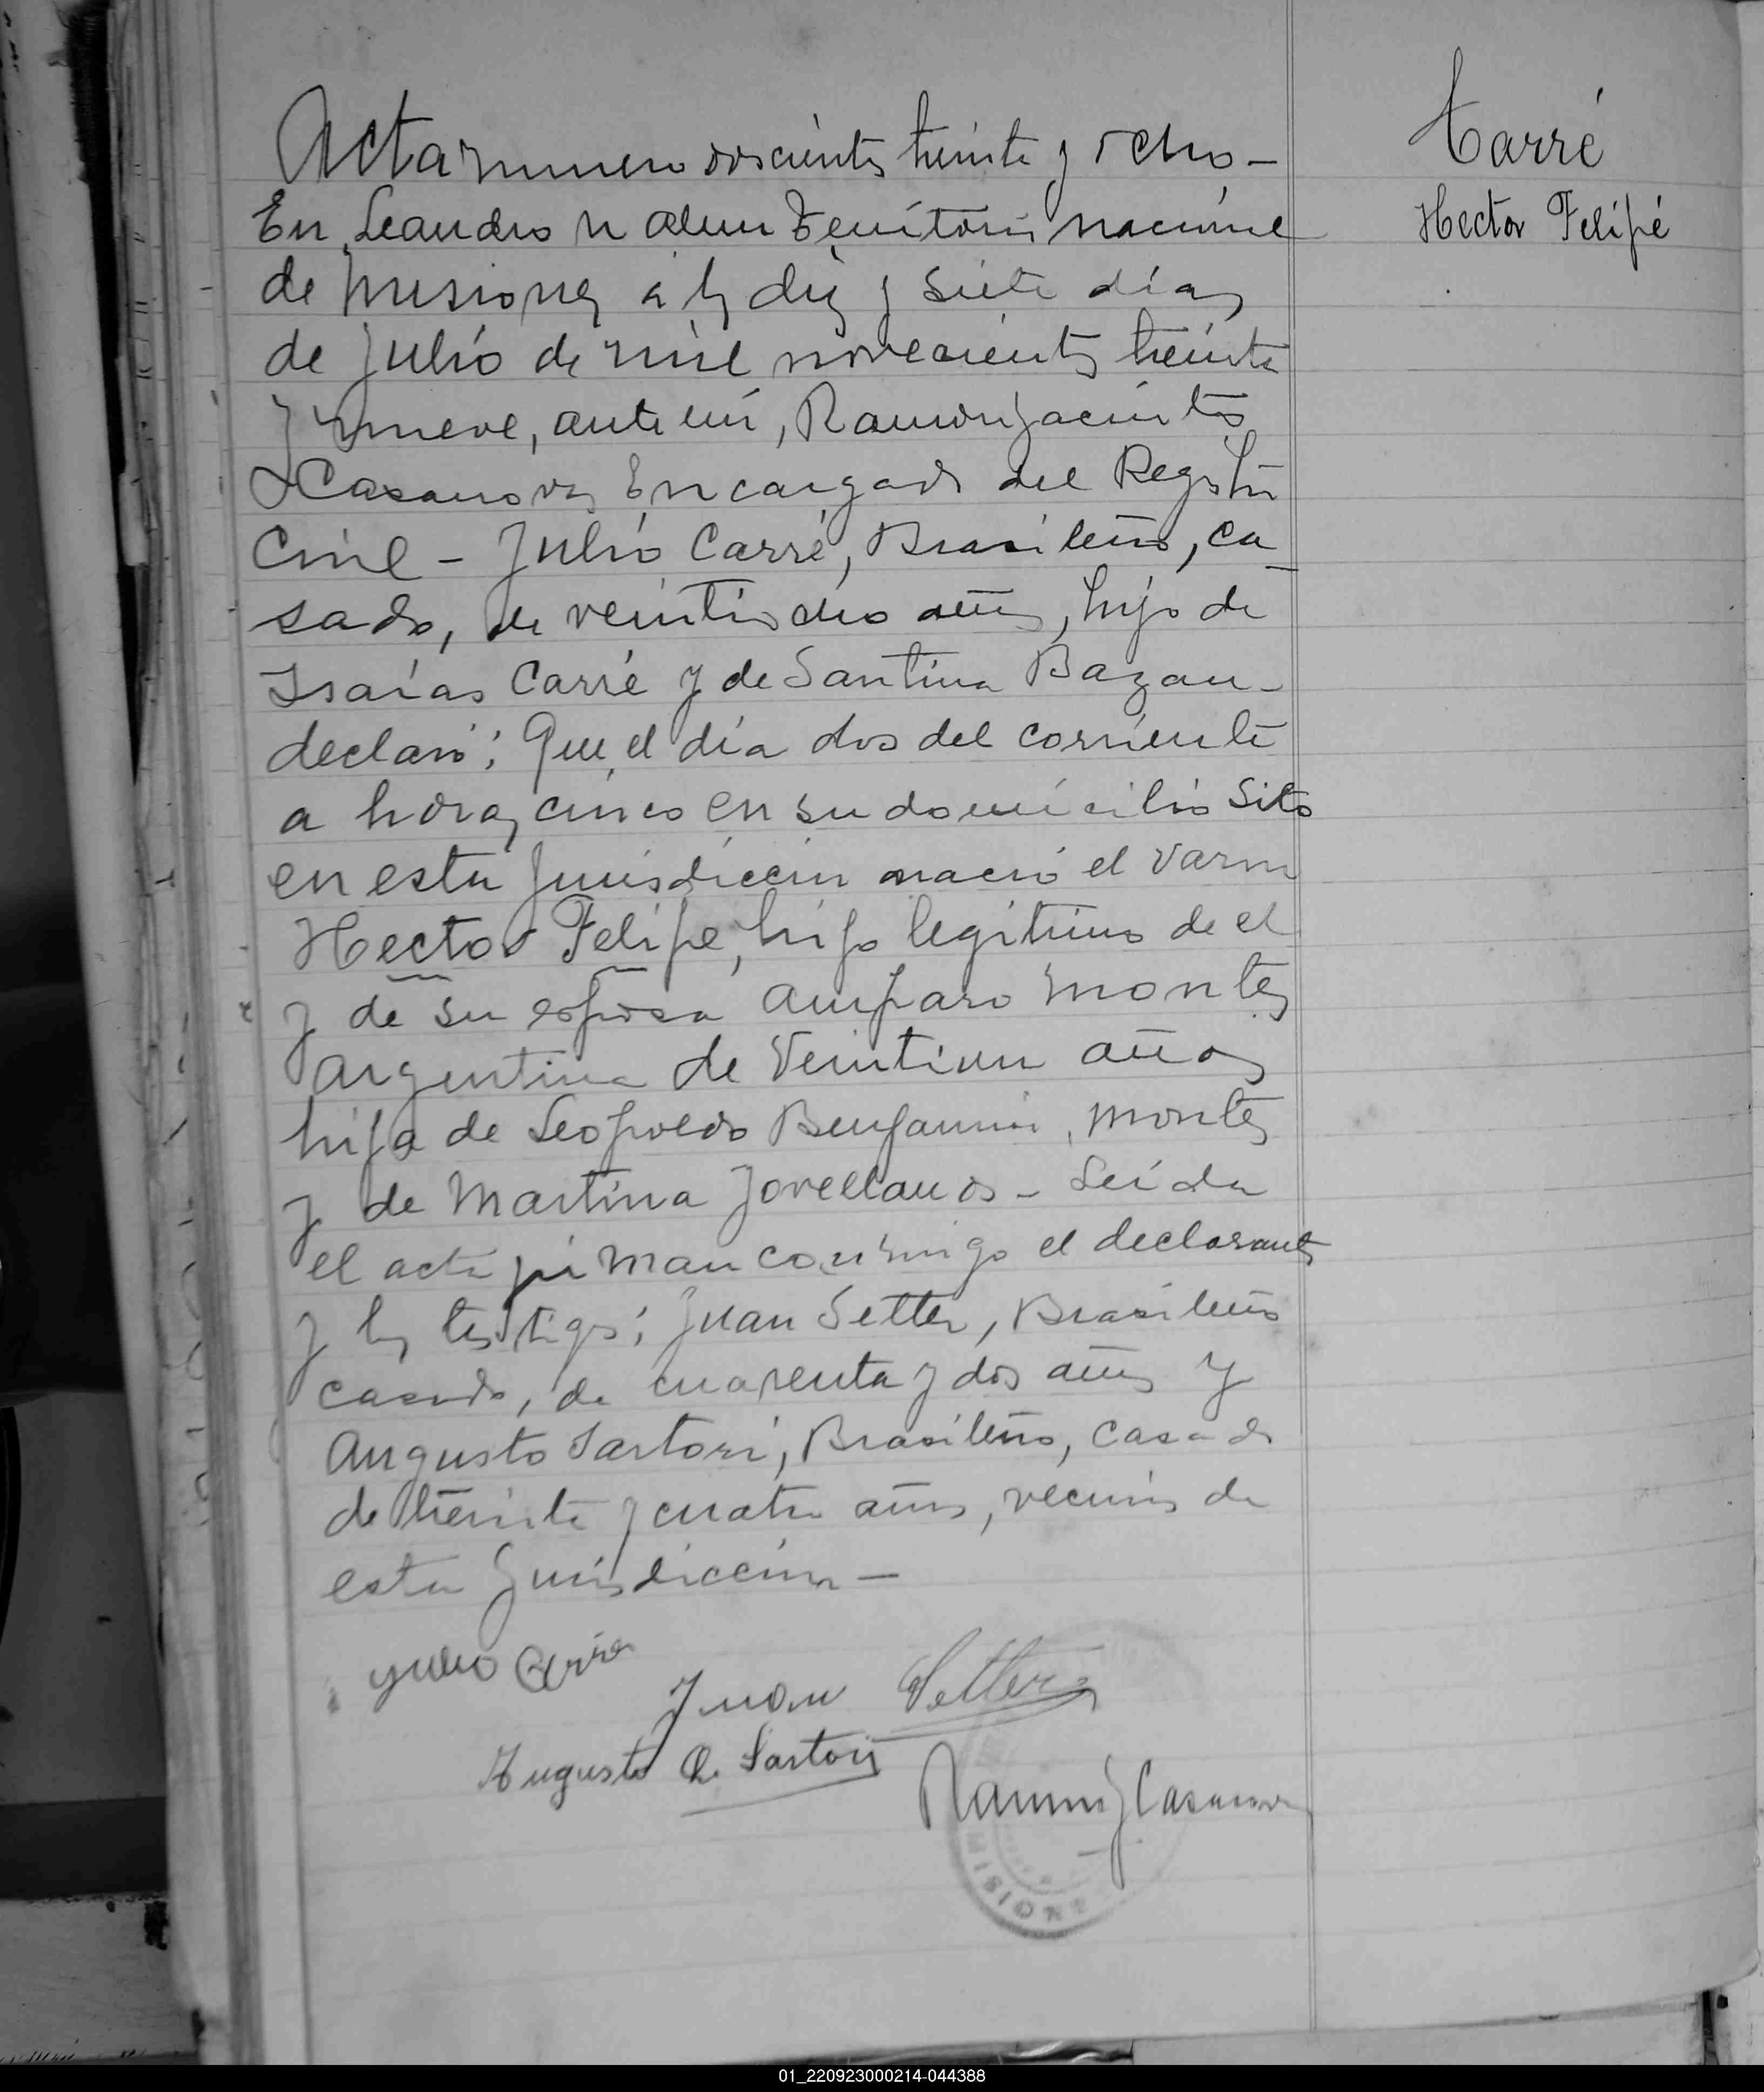 Acta numero doscientos treinta y ocho -
Carré
En Leandro N Alem Territorio nacional
Hector Felipé
de Misiones a los diez y siete días
de Julio de mil novecientos treinta
y nueve, ante mí, Ramón Jacinto
Casanova, Encargado del Registro
Civil - Julio Carré, Brasileño, ca
sado, de años, hijo de
Isaías Carré y de Santina Bazan -
declaró: Que, el día dos del corriente
a horas cinco en su domicilio sito
en esta Jurisdicción nació el varon
Hector Felipe, hijo legitimo de el
y de su esposa Amparo Montes
argentina de Veintiun años
hija de Leopoldo Benjamin, Montes
y de Martina Jovellanos - Leída
el acta firman conmigo el declarante
y los testigos: Juan Setter, Brasileño
casado, de cuarenta y dos años y
Augusto Sartori, Brasileño, casado
de treinta y cuatro años, vecinos de
esta Jurisdicción -
Julio Carre
Juan Setter
Augusto Sartori
Ramón J Casanova
01_220923000214-044388